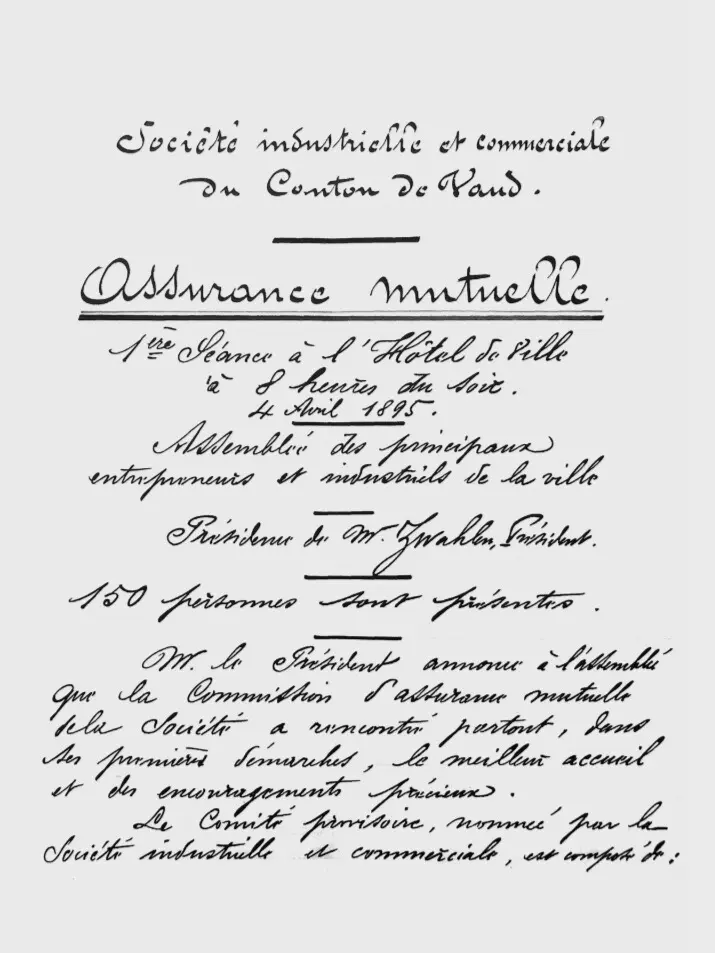 Société industrielle et commerciale
du Canton de Vaud.
Assurance mutuelle.
1ère Séance à l'Hôtel de Ville
à 8 heures du soir.
4 Avril 1895.
Assemblée des principaux
entrepreneurs et industriels de la ville
Présidence de M. Zwahlen, Président.
150 personnes sont présentes.
M. le Président annonce à l'assemblée
que la Commission d'assurance mutuelle
de la Société a rencontré partout, dans
ses premières démarches, le meilleur accueil
et des encouragements précieux.
Le Comité provisoire, nommé par la
Société industrielle et commerciale, est composé de :